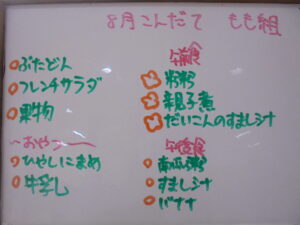 8月こんだて もも組
ぶたどん
フレンチサラダ
果物
〜おやつ〜
ひやしにこまめ
牛乳
午前食
粥
親子煮
だいこんのすまし汁
午後食
南瓜粥
すまし汁
バナナ